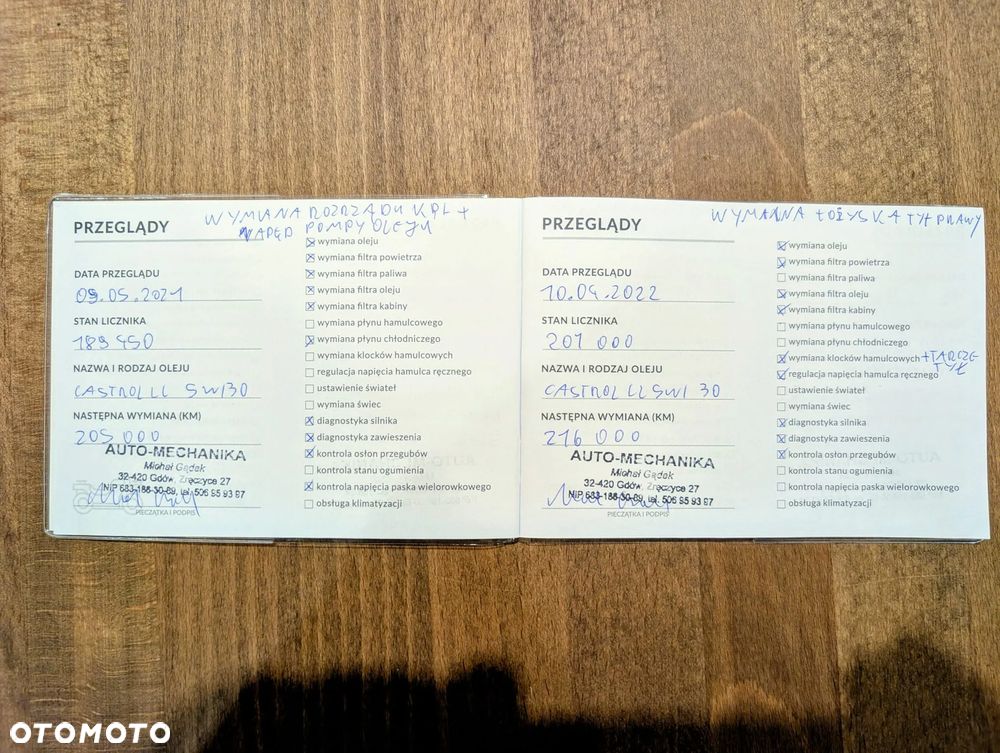 PRZEGLĄDY
WYMIANA ROZRZĄDU KPL +
NAPĘD POMPY OLEJU
DATA PRZEGLĄDU
09.05.2021
STAN LICZNIKA
189 450
NAZWA I RODZAJ OLEJU
CASTROL LL 5W130
NASTĘPNA WYMIANA (KM)
205 000
AUTO-MECHANIKA
Michał Gądek
32-420 Gdów, Zręczyce 27
NIP 683-188-30-89, tel. 506 95 93 87
PIECZĄTKA I PODPIS
wymiana oleju
wymiana filtra powietrza
wymiana filtra paliwa
wymiana filtra oleju
wymiana filtra kabiny
wymiana płynu hamulcowego
wymiana płynu chłodniczego
wymiana klocków hamulcowych
regulacja napięcia hamulca ręcznego
ustawienie świateł
wymiana świec
diagnostyka silnika
diagnostyka zawieszenia
kontrola osłon przegubów
kontrola stanu ogumienia
kontrola napięcia paska wielorowkowego
obsługa klimatyzacji
PRZEGLĄDY
WYMIANA ŁOŻYSKA TYŁ PRAWY
DATA PRZEGLĄDU
10.04.2022
STAN LICZNIKA
201 000
NAZWA I RODZAJ OLEJU
CASTROL LL 5W1 30
NASTĘPNA WYMIANA (KM)
216 000
AUTO-MECHANIKA
Michał Gądek
32-420 Gdów, Zręczyce 27
NIP 683-188-30-89, tel. 506 95 93 87
PIECZĄTKA I PODPIS
wymiana oleju
wymiana filtra powietrza
wymiana filtra paliwa
wymiana filtra oleju
wymiana filtra kabiny
wymiana płynu hamulcowego
wymiana płynu chłodniczego
wymiana klocków hamulcowych + TARCZE
TYŁ
regulacja napięcia hamulca ręcznego
ustawienie świateł
wymiana świec
diagnostyka silnika
diagnostyka zawieszenia
kontrola osłon przegubów
kontrola stanu ogumienia
kontrola napięcia paska wielorowkowego
obsługa klimatyzacji
OTOMOTO